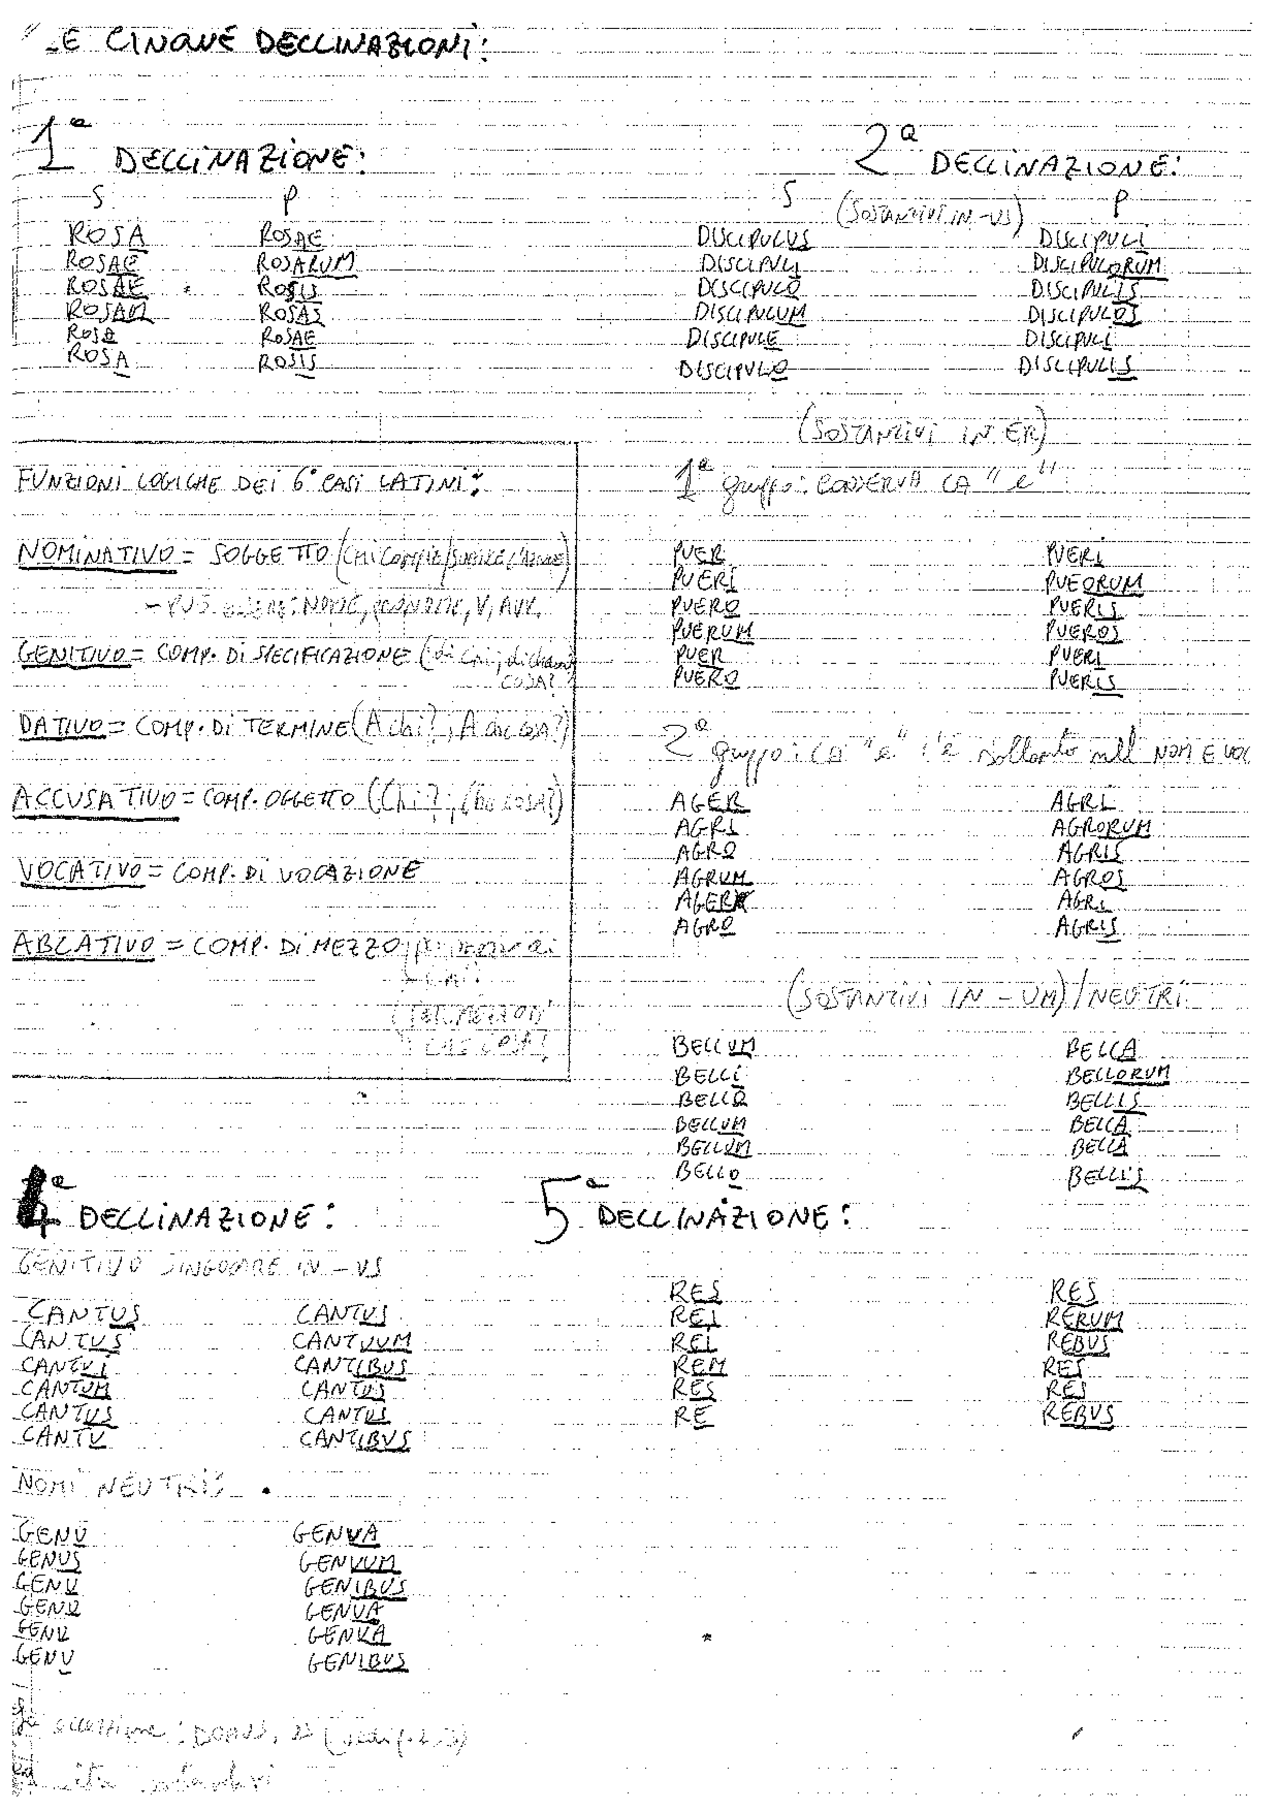 LE CINQUE DECLINAZIONI:
1ª DECLINAZIONE:
S P
ROSA ROSAE
ROSAE ROSARUM
ROSAE ROSIS
ROSAM ROSAS
ROSA ROSAE
ROSA ROSIS
2ª DECLINAZIONE:
S (SOSTANTIVI IN -US) P
DISCIPULUS DISCIPULI
DISCIPULI DISCIPULORUM
DISCIPULO DISCIPULIS
DISCIPULUM DISCIPULOS
DISCIPULE DISCIPULI
DISCIPULO DISCIPULIS
(SOSTANTIVI IN ER)
1º gruppo: CONSERVA LA "e"
PUER PUERI
PUERI PUEORUM
PUERO PUERIS
PUERUM PUEROS
PUER PUERI
PUERO PUERIS
2º gruppo: LA "e" c'è soltanto nel NOM E VOC
AGER AGRI
AGRI AGRORUM
AGRO AGRIS
AGRUM AGROS
AGER AGRI
AGRO AGRIS
(SOSTANTIVI IN -UM)/NEUTRI
BELLUM BELLA
BELLI BELLORUM
BELLO BELLIS
BELLUM BELLA
BELLUM BELLA
BELLO BELLIS
FUNZIONI LOGICHE DEI 6 CASI LATINI:
NOMINATIVO = SOGGETTO (CHI COMPIE/SUBISCE L'AZIONE)
- PUÒ ESSERE: NOME, PRONOME, V, AVV.
GENITIVO = COMP. DI SPECIFICAZIONE (di chi?, di che
COSA?
DATIVO = COMP. DI TERMINE (A chi?, A che COSA?)
ACCUSATIVO = COMP. OGGETTO (Chi?, Che COSA?)
VOCATIVO = COMP. DI VOCAZIONE
ABLATIVO = COMP. DI MEZZO
COSA?
4ª DECLINAZIONE:
GENITIVO SINGOLARE IN -US
CANTUS CANTUS
CANTUS CANTUUM
CANTUI CANTIBUS
CANTUM CANTUS
CANTUS CANTUS
CANTU CANTIBUS
NOMI NEUTRI:
GENU GENUA
GENUS GENUUM
GENU GENIBUS
GENU GENUA
GENU GENUA
GENU GENIBUS
eccezione: DOMUS,
5ª DECLINAZIONE:
RES RES
REI RERUM
REI REBUS
REM RES
RES RES
RE REBUS